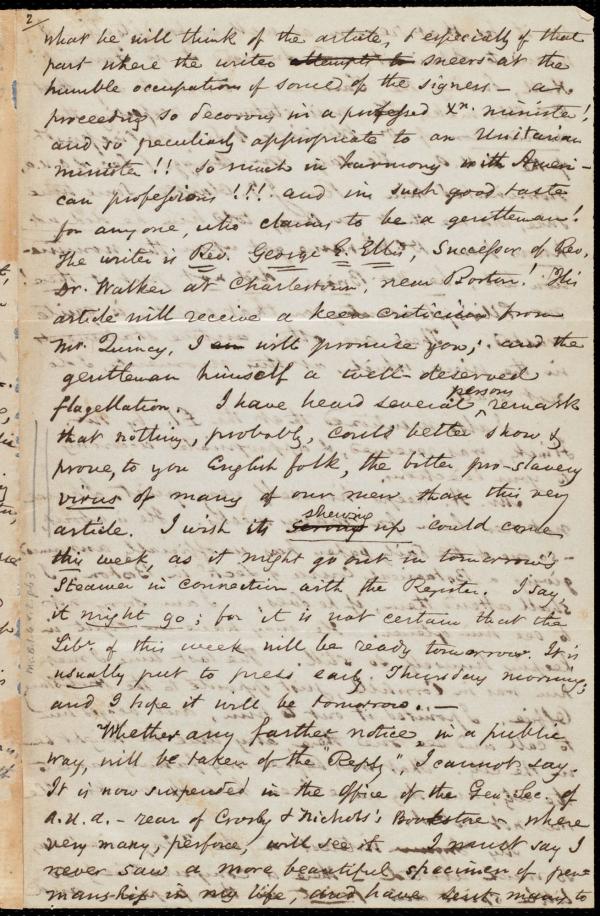 2/
what he will think of the article, & especially of that
part where the writer attempts to sneers at the
humble occupations of some of the signers – a
proceeding so decorous in a professed Xn. minister!
and so peculiarly appropriate to an Unitarian
minister!! so much in harmony with Ameri-
can professions!!! and in such good taste
for any one, who claims to be a gentleman!
The writer is Rev. George E. Ellis, Successor of Rev.
Dr. Walker at Charlestown, near Boston! This
article will receive a keen criticism from
Mr. Quincy, I am will promise you; and the
gentleman himself a well-deserved
flagellation. I have heard several persons remark
that nothing, probably, could better show, &
prove, to you English folk, the bitter pro-slavery
virus of many of our men than this very
article. I wish its serving shewing up could come
this week, as it might go out in tomorrow's
Steamer in connection with the Register. I say,
it might go; for it is not certain that the
Libr. of this week will be ready tomorrow. It is
usually put to press early Thursday morning;
and I hope it will be tomorrow. –
Whether any farther notice, in a public
way, will be taken of the "Reply", I cannot say.
It is now suspended in the Office of the Gen. Sec. of
A.U.A. – rear of Crosby & Nichols's Bookstore – where
very many, perforce, will see it. I must say I
never saw a more beautiful specimen of pen-
manship in my life, and have sent many to